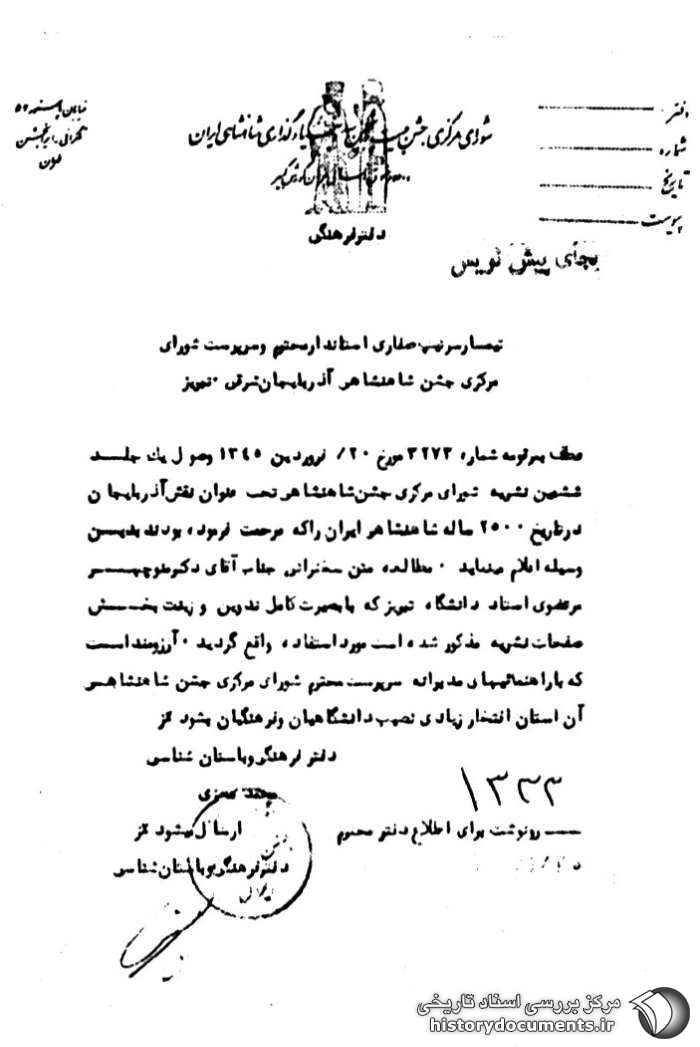 دفتر
شماره
تاریخ
پیوست
شورای مرکزی جشن شاهنشاهی ایران
دفتر فرهنگی
بجای پیش نویس
تیمسار سرتیپ صفاری استاندار محترم و سرپرست شورای
مرکزی جشن شاهنشاهی آذربایجان شرقی · تبریز
عطف بمرقومه شماره ۳۲۷۳ مورخ ۲۰/ فروردین ۱۳۴۵ وصول یك جلـد
ششمین نشریه شورای مرکزی جشن شاهنشاهی تحت عنوان نقش آذربایجان
در تاریخ ۲۵۰۰ ساله شاهنشاهی ایران را که مرحمت فرموده بودند بدیـن
وسیله اعلام مینماید · مطالعه متن سخنرانی جناب آقای دکتر منوچهـر
مرتضوی استاد دانشگاه تبریز که با بصیرت کامل تدوین و زینت بخـش
صفحات نشریه مذکور شده است مورد استفاده واقع گردید · آرزومند اسـت
که با راهنمائیهای مدبرانه سرپرست محترم شورای مرکزی جشن شاهنشاهـی
آن استان افتخار زیادی نصیب دانشگاهیان و فرهنگیان بشود
دفتر فرهنگی و باستان شناسی
۱۳۳۳
رونوشت برای اطلاع دفتر محترم
ارسال میشود
دفتر فرهنگی و باستان شناسی
مرکز بررسی اسناد تاریخی
historydocuments.ir